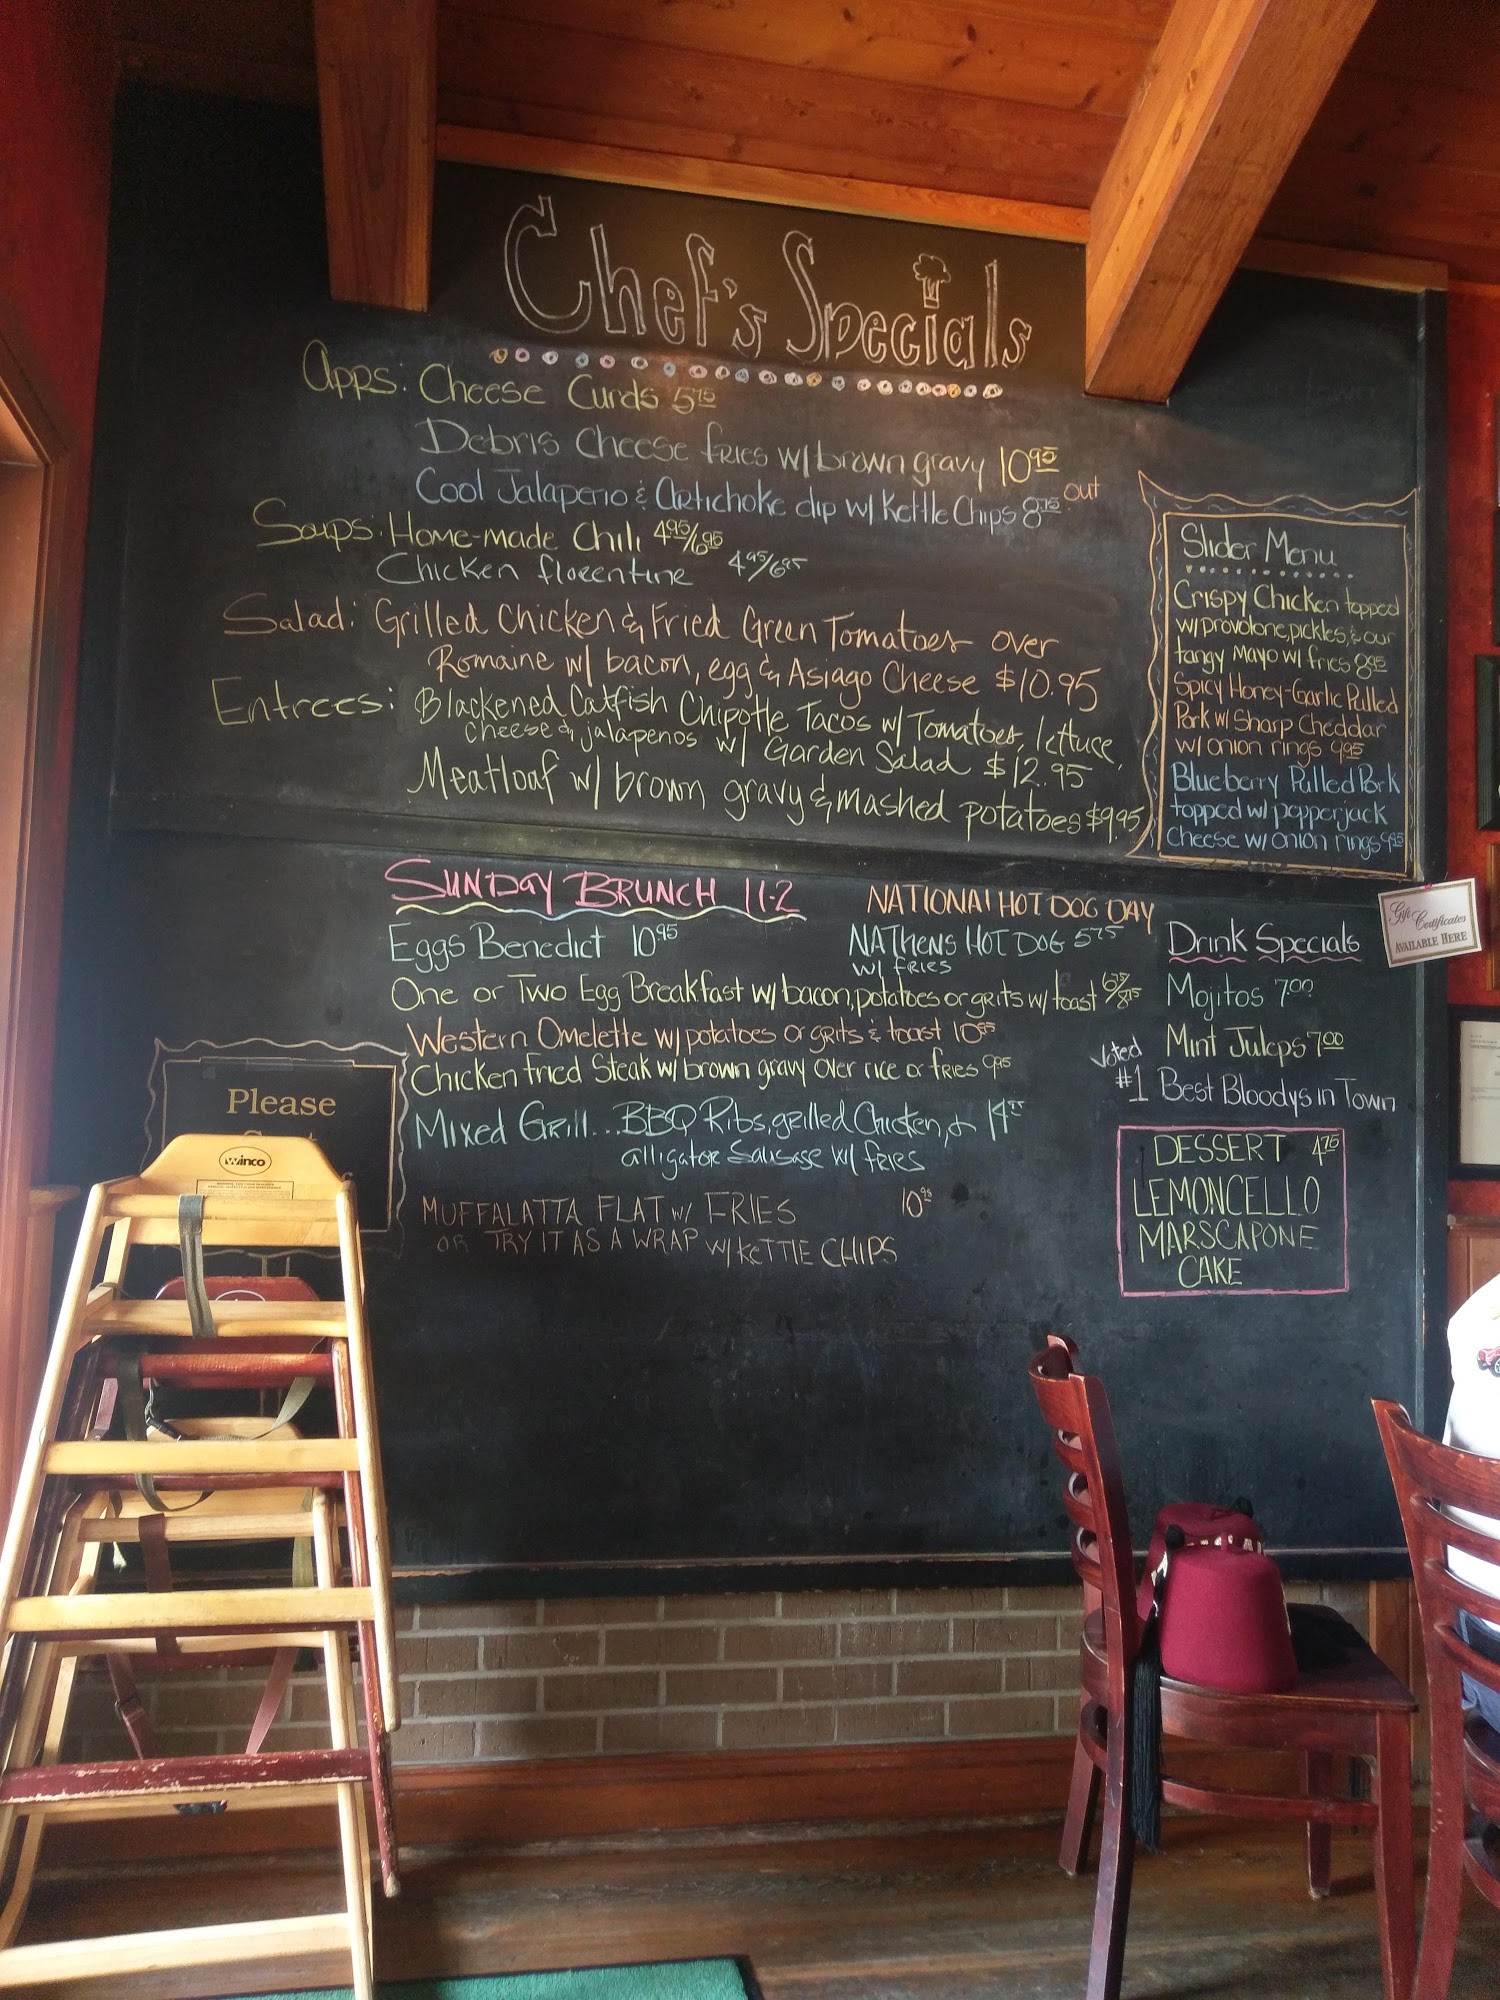 Chef's Specials
Apps: Cheese Curds 5.75
Debris Cheese fries w/ brown gravy 10.95
Cool Jalapeno & Artichoke dip w/ Kettle Chips 8.75 out
Soups: Home-made Chili 4.95/6.95
Chicken florentine 4.95/6.95
Salad: Grilled Chicken & Fried Green Tomatoes over
Romaine w/ bacon, egg & Asiago Cheese $10.95
Entrees: Blackened Catfish Chipotle Tacos w/ Tomatoes, lettuce,
cheese & jalapenos w/ Garden Salad $12.95
Meatloaf w/ brown gravy & mashed potatoes $9.95
Slider Menu
Crispy Chicken topped
w/ provolone, pickles, & our
tangy Mayo w/ fries 8.95
Spicy Honey-Garlic Pulled
Pork w/ Sharp Cheddar
w/ onion rings 9.95
Blueberry Pulled Pork
topped w/ pepperjack
Cheese w/ onion rings 9.95
SUNDAY BRUNCH 11-2
Eggs Benedict 10.95
One or Two Egg Breakfast w/ bacon, potatoes or grits w/ toast 6.75/8.75
Western Omelette w/ potatoes or grits & toast 10.95
Chicken Fried Steak w/ brown gravy over rice or fries 9.95
Mixed Grill... BBQ Ribs, grilled Chicken, &
alligator Sausage w/ fries
MUFFALATTA FLAT w/ FRIES 10.95
OR TRY IT AS A WRAP w/ KETTLE CHIPS
NATIONAL HOT DOG DAY
NATHENS HOT DOG 5.75
w/ FRIES
Drink Specials
Mojitos 7.00
Mint Juleps 7.00
Voted
#1 Best Bloodys in Town
DESSERT 4.75
LEMONCELLO
MARSCAPONE
CAKE
Gift
Certificates
AVAILABLE HERE
Please
winco